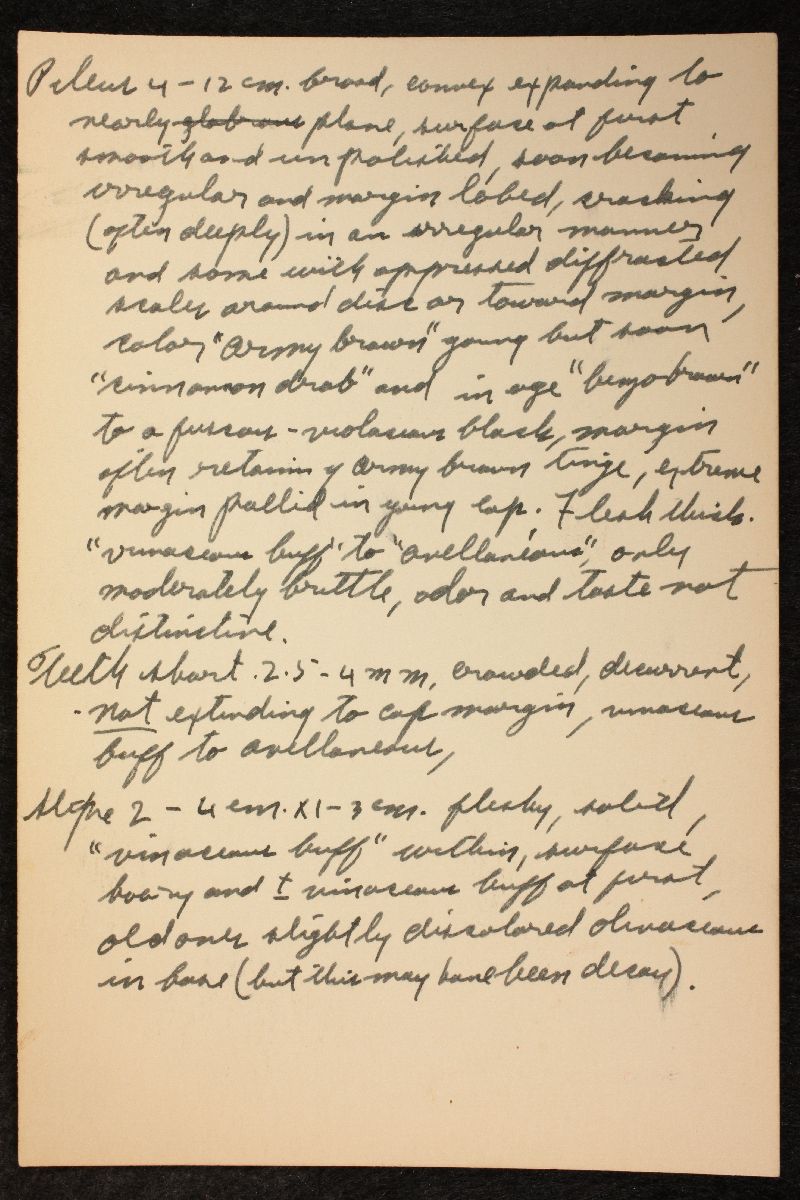 Pileus 4-12 cm. broad, convex expanding to
nearly glabrous plane, surface at first
smooth and unpolished, soon becoming
irregular and margin lobed, cracking
(often deeply) in an irregular manner
and some with appressed diffracted
scales around disc or toward margin,
color "army brown" young but soon
"cinnamon drab" and in age "benzo brown"
to a fuscous-violaceous black, margin
often retaining army brown tinge, extreme
margin pallid in young cap. Flesh thick.
"vinaceous buff" to "avellaneous", only
moderately brittle, odor and taste not
distinctive.
Teeth short .2.5-4 mm, crowded, decurrent,
- not extending to cap margin, vinaceous
buff to avellaneous,
Stipe 2-4 cm. x 1-3 cm. fleshy, solid,
"vinaceous buff" within, surface
and ± vinaceous buff at first,
old ones slightly discolored olivaceous
in base (but this may have been decay).